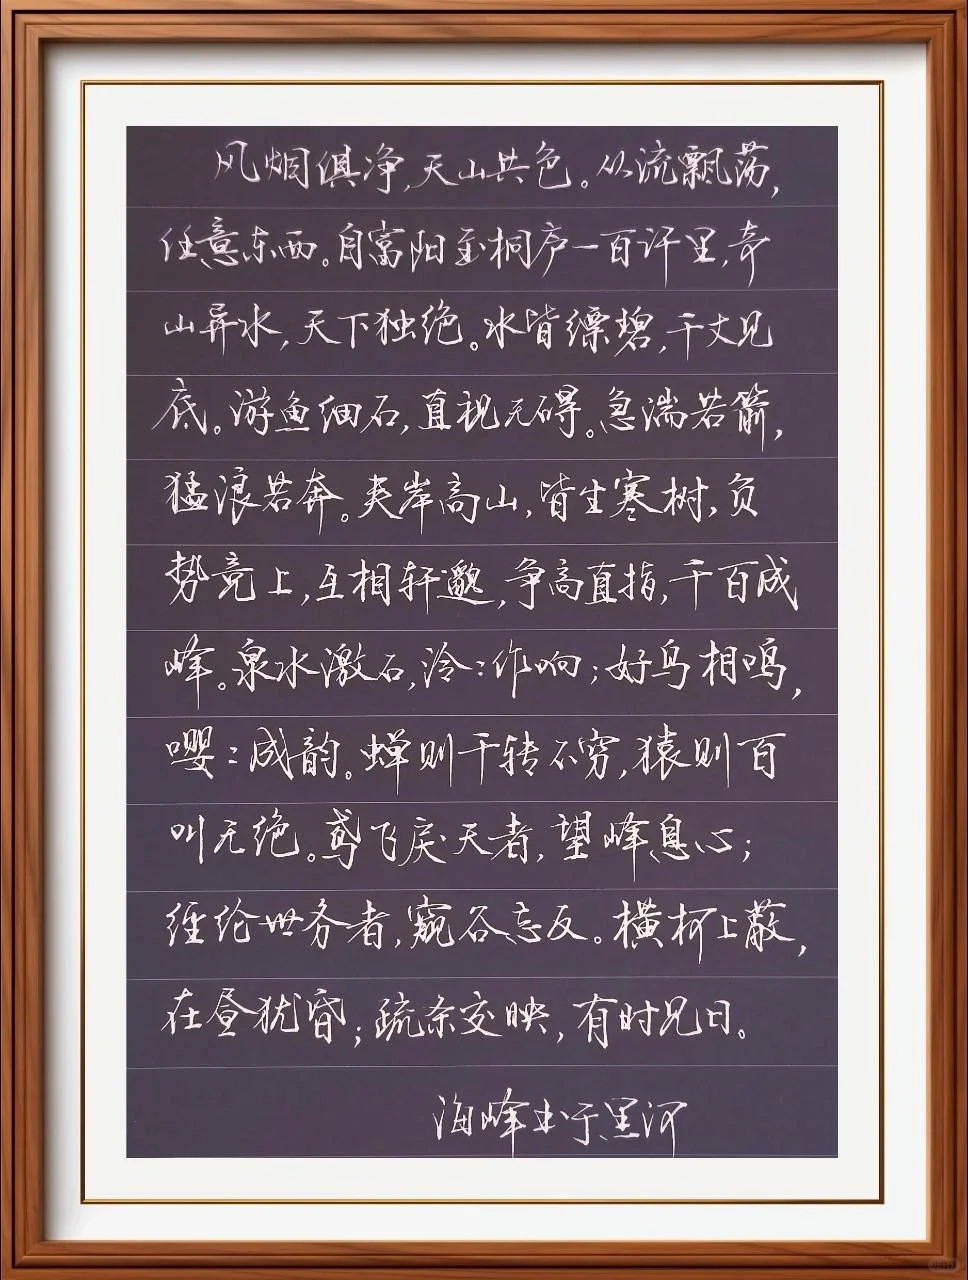 风烟俱净,天山共色。从流飘荡,
任意东西。自富阳至桐庐一百许里,奇
山异水,天下独绝。水皆缥碧,千丈见
底。游鱼细石,直视无碍。急湍若箭,
猛浪若奔。夹岸高山,皆生寒树,负
势竞上,互相轩邈,争高直指,千百成
峰。泉水激石,泠:作响;好鸟相鸣,
嘤:成韵。蝉则千转不穷,猿则百
叫无绝。鸢飞戾天者,望峰息心;
经纶世务者,窥谷忘反。横柯上蔽,
在昼犹昏;疏条交映,有时见日。
海峰书于黑河